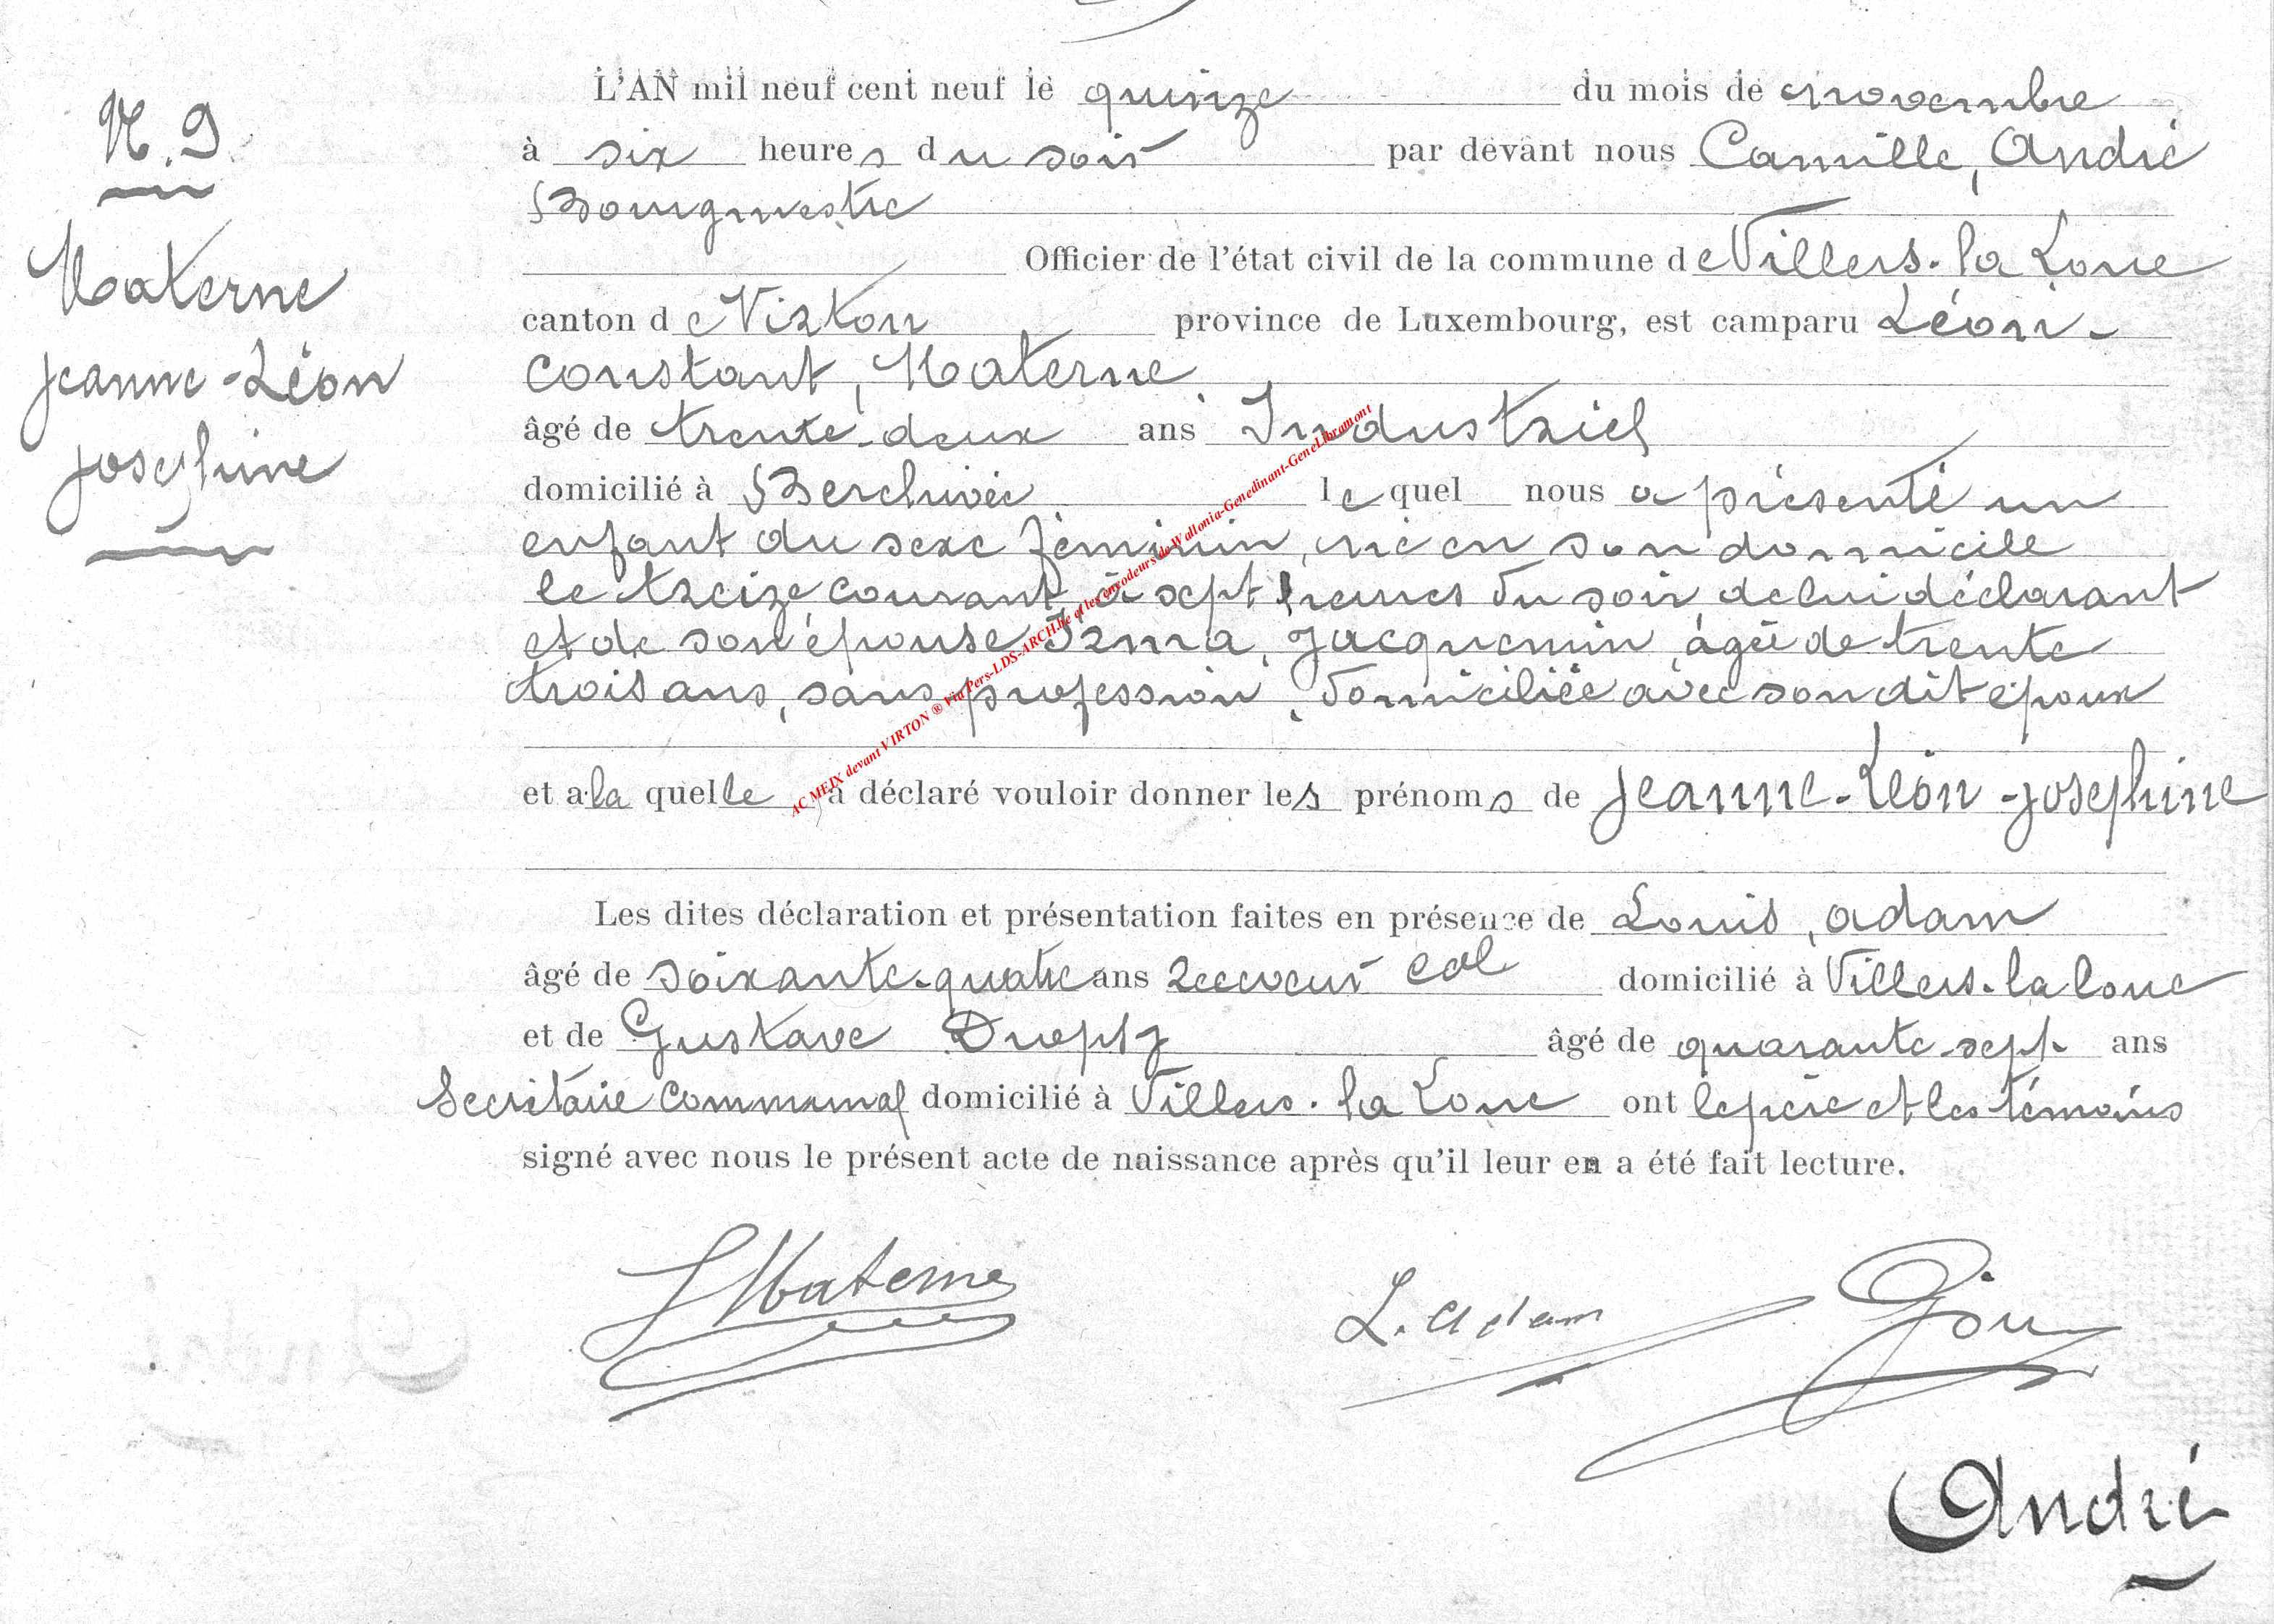 N. 9
Materne
Jeanne-Léon
Josephine
L'AN mil neuf cent neuf le quinze du mois de novembre
à six heures du soir par devant nous Camille, André
Bourgmestre
Officier de l'état civil de la commune de Villers-la Loue
canton de Virton province de Luxembourg, est camparu Léon-
Constant, Materne
âgé de trente-deux ans Industriel
domicilié à Berchivée lequel nous a présenté un
enfant du sexe féminin, née en son domicile
le treize courant, à sept heures du soir, de lui déclarant
et de son épouse Irma, Jacquemin, âgée de trente
trois ans, sans profession, domiciliée avec son dit époux
et a la quelle a déclaré vouloir donner les prénoms de Jeanne-Léon-Josephine
Les dites déclaration et présentation faites en présence de Louis, Adam
âgé de soixante-quatre ans receveur cal domicilié à Villers-la loue
et de Gustave âgé de quarante-sept ans
Secrétaire communal domicilié à Villers-la Loue ont le père et les témoins
signé avec nous le présent acte de naissance après qu'il leur en a été fait lecture.
L Materne
L. Adam
André
AC MEIX devant VIRTON ® Via Pers-LDS-ARCH.be et les encodeurs de Wallonia-Genedinant-GeneLibramont